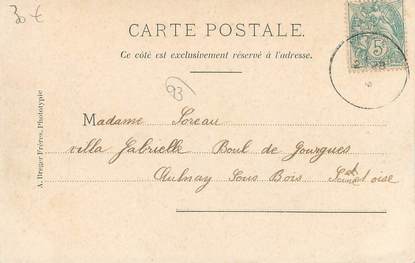 30 €
CARTE POSTALE.
Ce côté est exclusivement réservé à l'adresse.
5c
93
Madame Soreau
villa Gabrielle Boul de Gourgues
Aulnay Sous Bois Seine et oise
A. Breger Frères, Phototypie